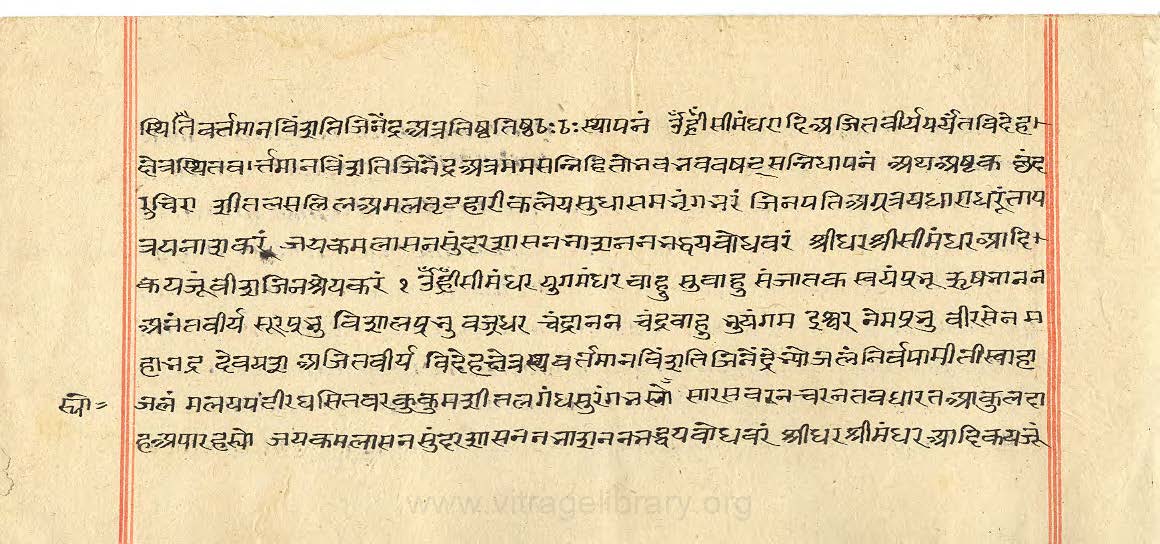 स्थितै वर्त्तमानविंशतिजिनेंद्रअत्रतिष्ठतिष्ठठःठःस्थापनं ॐह्रीँसीमंधरादिअजितवीर्यपर्यंतविदेहा
क्षेत्रस्थितवार्त्तमानविंशतिजिनेंद्रअत्रममसन्निहितोनवनववषट्सन्निधापनं अथअष्टक छंद
शीतलसलिलअमल सुधासम जिनपतिअग्रत्रयधारा
जयकमलासनसुंदरशासन बोधवरं श्रीधरश्रीसीमंधरआदि
कयजूंवीशजिनश्रेयकरं १ ॐह्रीँसीमंधर युगमंधर वाहु सुवाहु संजातक स्वयंप्रनू ऋषनानन
अनंतवीर्य सूरप्रनु विशालप्रनु वज्रधर चंद्रानन चंद्रवाहु नुयंगम इश्वर नेमप्रनु वीरसेन म
हानद्र देवयश अजितवीर्य विदेहक्षेत्रस्थवर्तमानविंशतिजिनेंद्रेन्योजलंनिर्वपामीतीस्वाहा
जलं मलय घसितवरकुकुमशीतलगंधसुरंग सारस तवधारतआकुलदा
हअपार जयकमलासनसुंदरशासन बोधवरं श्रीधरश्रीमंधरआदिकयजूं
www.vitragelibrary.org